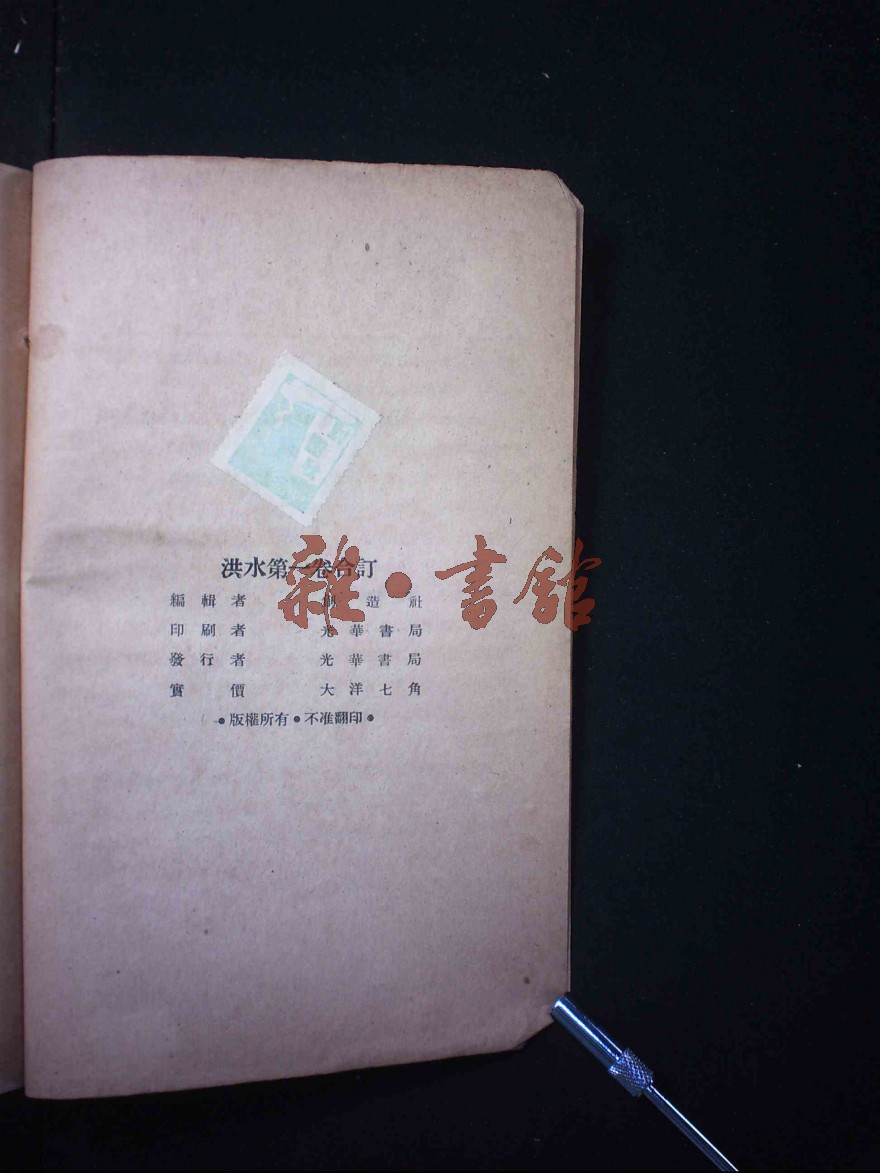 洪水第一卷合訂
編輯者 創造社
印刷者 光華書局
發行者 光華書局
實價 大洋七角
●版權所有●不准翻印●
雜·書館